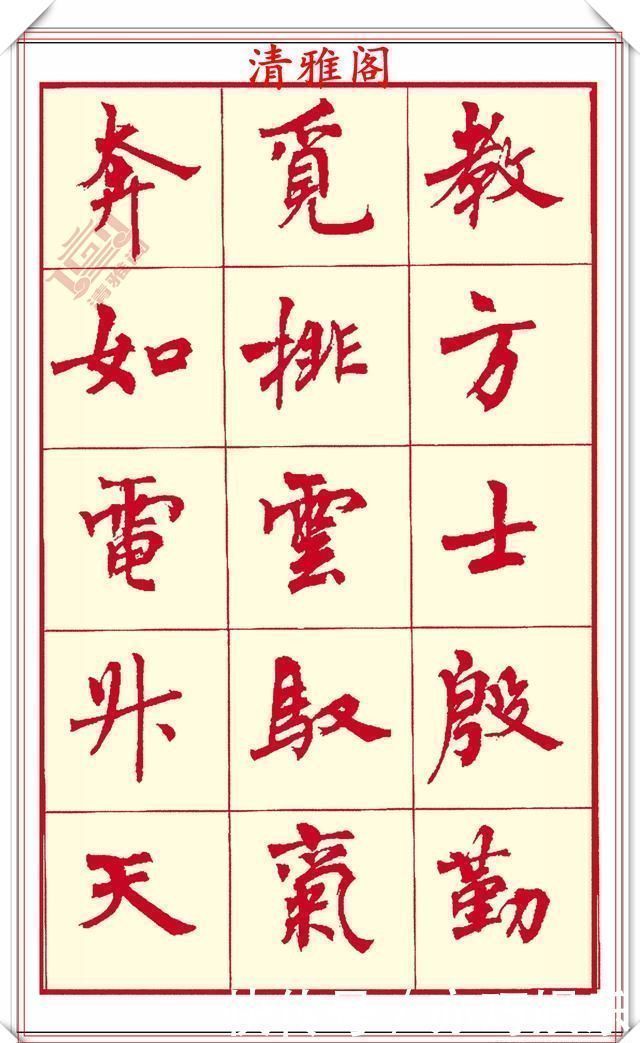 清雅阁
教方士殷勤
覓排雲馭氣
奔如電升天
清雅阁